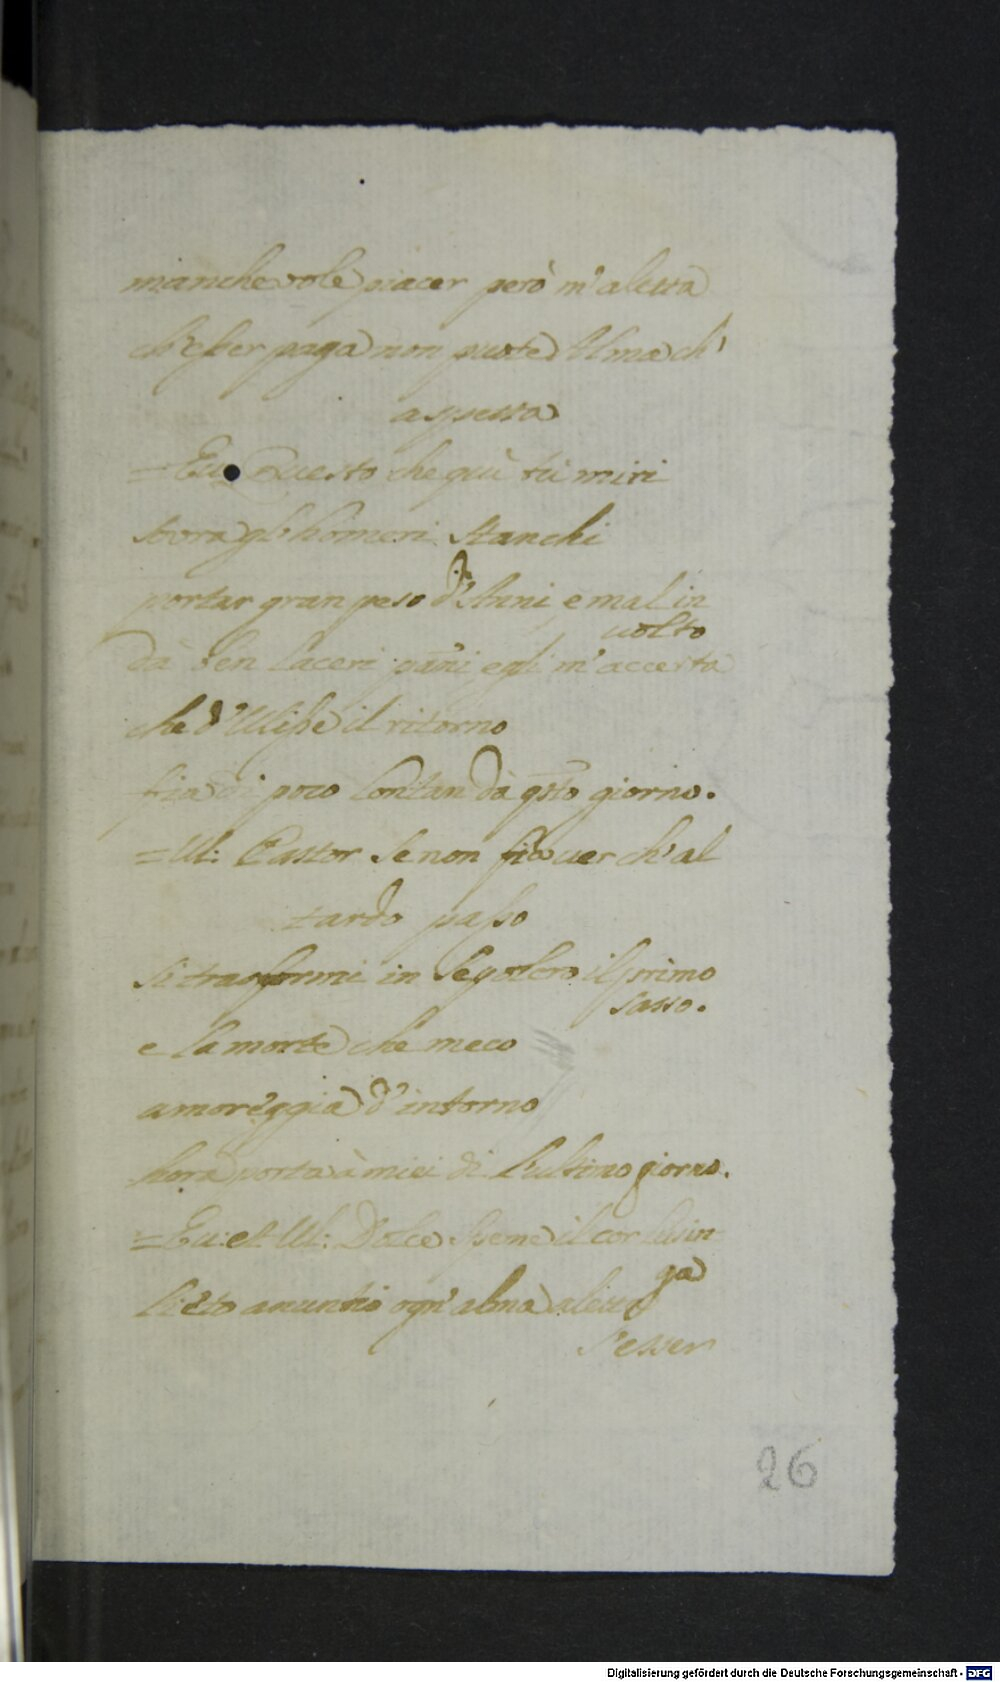 manchevole piacer però m'aletta
ch'esser paga non puote Alma ch'
aspetta
= Eu: Questo che quì tù miri
sovra gl'homeri stanchi
portar gran peso d'Anni e mal in
uolto
da ben laceri pãni egli m'accerta
che d'Ulisse il ritorno
fia di poco lontan dà q͠sto giorno.
= Ul: Pastor se non fia uer ch'al
tardo passo
si trasformi in sepolcro il primo
sasso.
e la morte che meco
amoreggia d'intorno
hora porta à miei dì l'ultimo giorno.
= Eu: et Ul: Dolce speme il cor lusin
ga
lieto anuntio ogn'alma aletta
s'esser
26
Digitalisierung gefördert durch die Deutsche Forschungsgemeinschaft - DFG